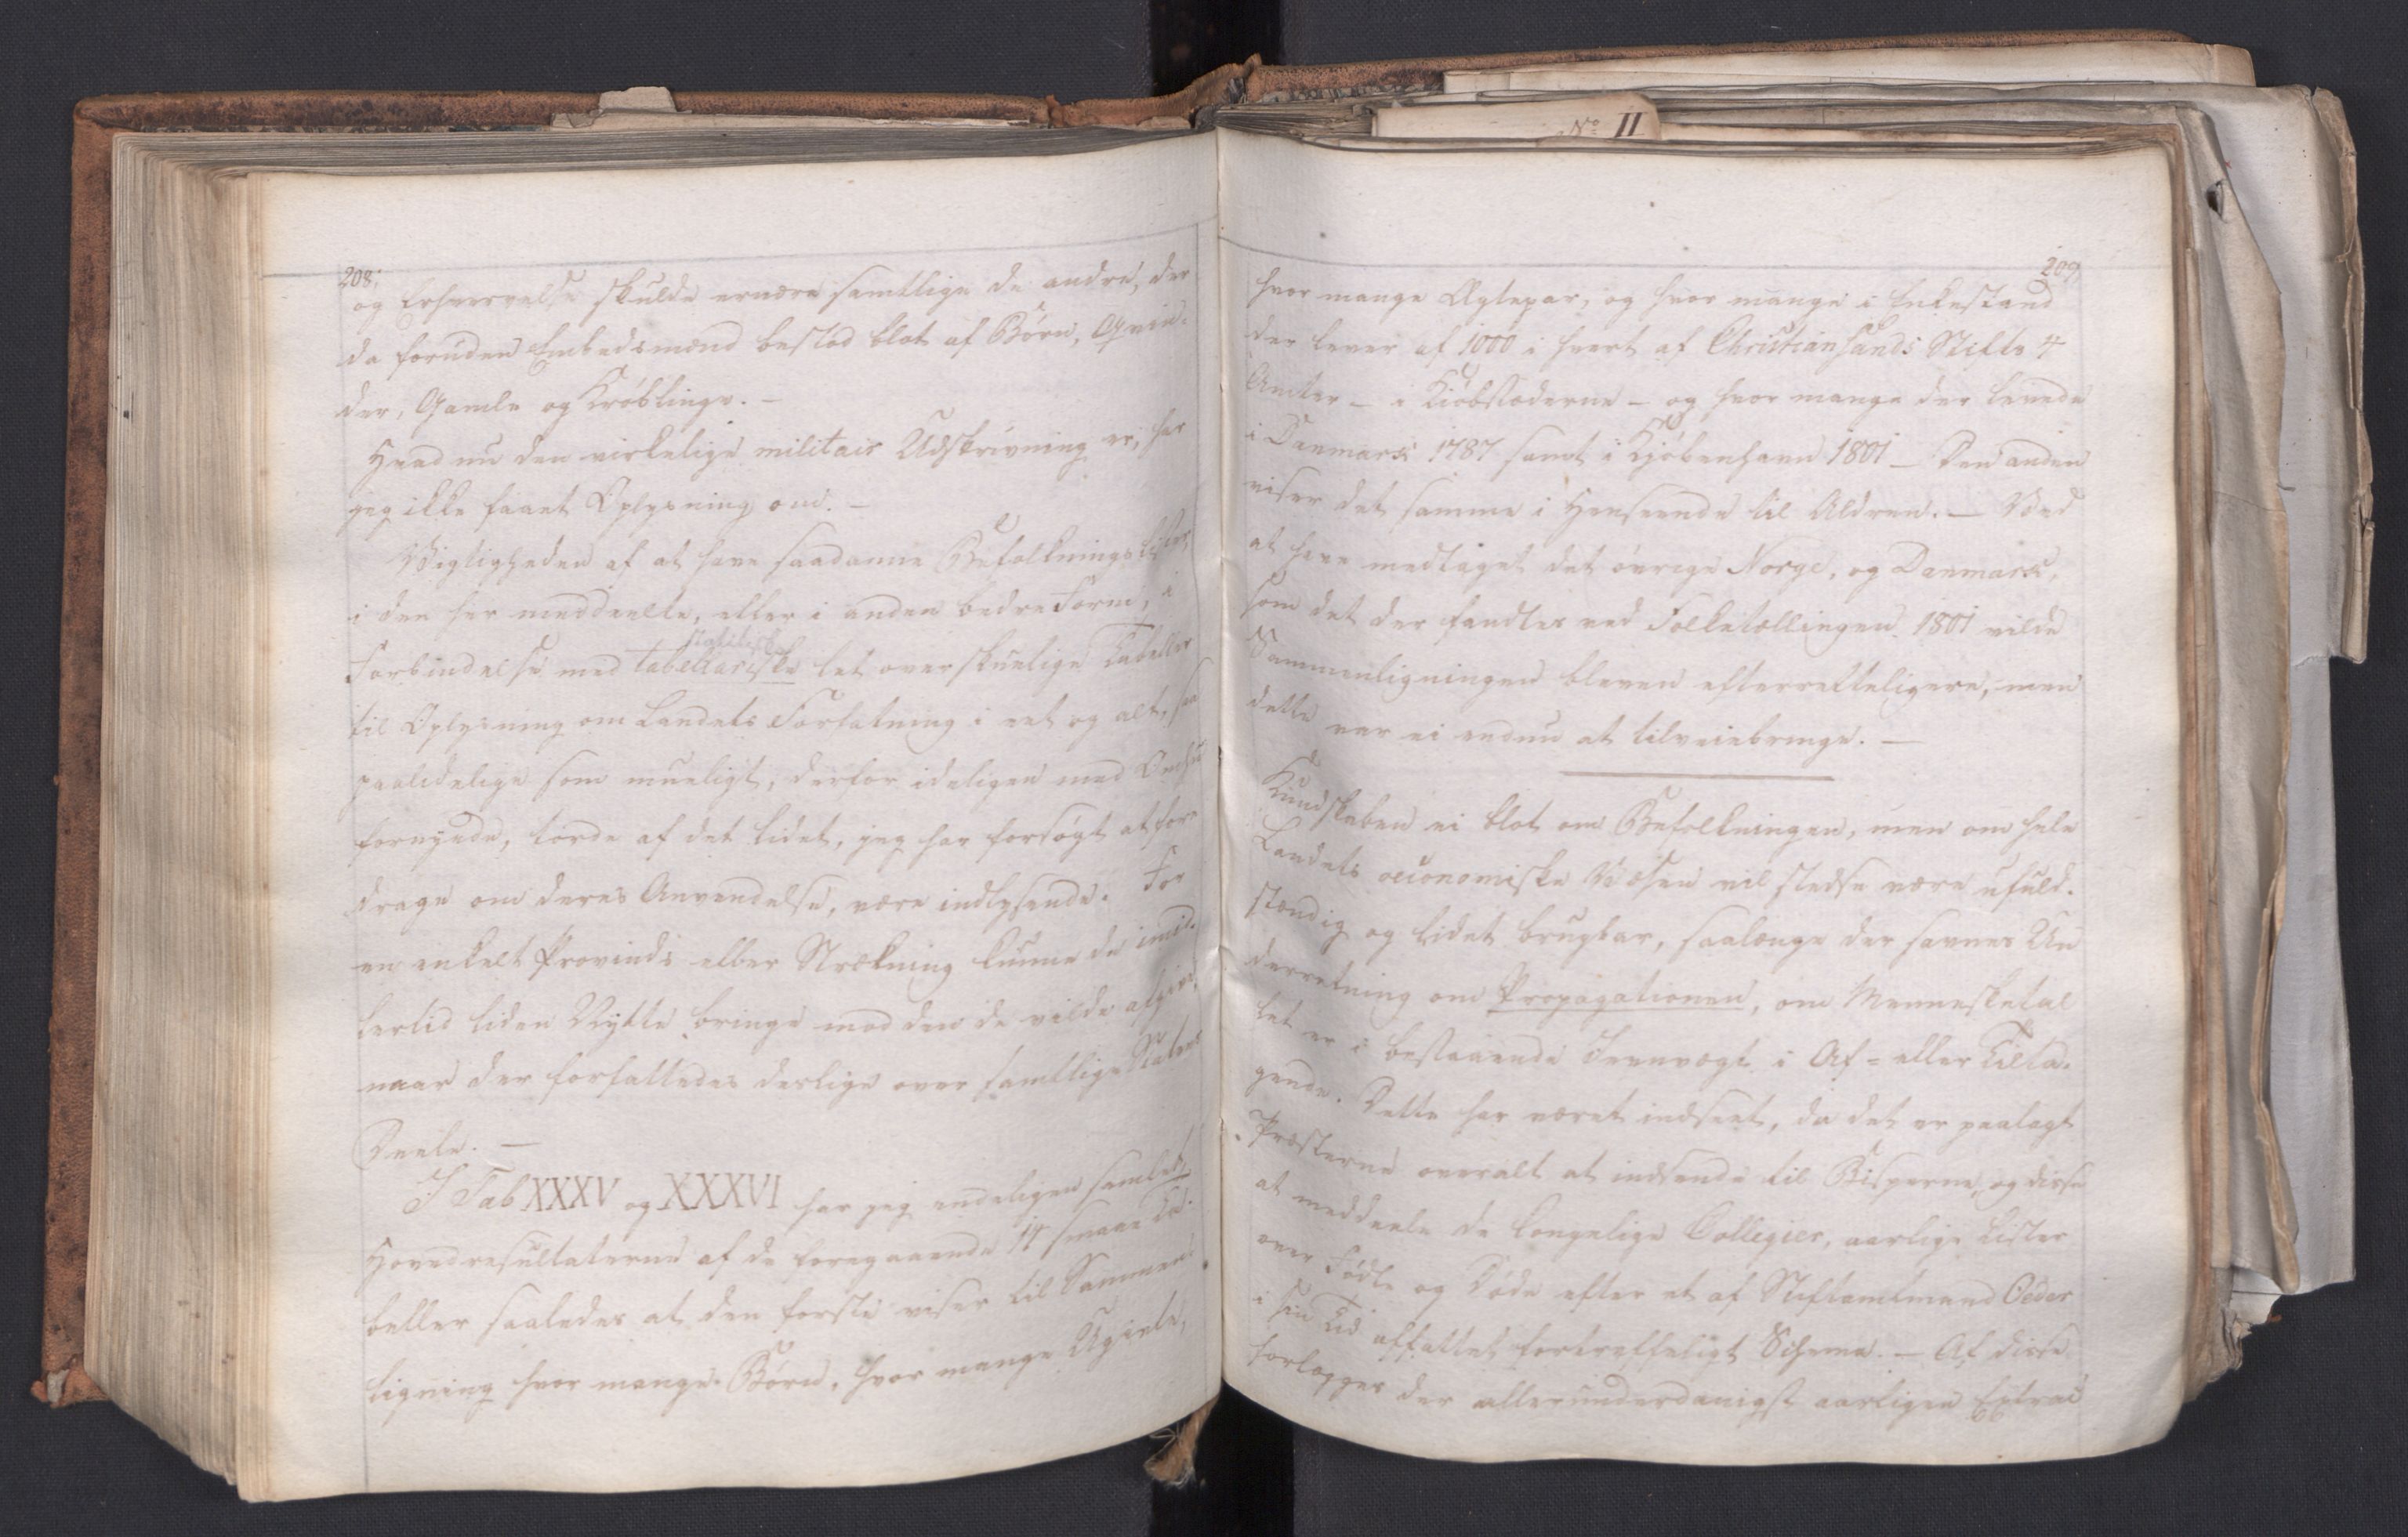 No II
208.
og Erhvervelse skulde ernære samtlige de andre, der
da foruden Embedsmænd bestod blot af Börn, Qvin-
der, Gamle og Kröblinge. -
Hvad nu den virkelige militair Udskrivning er, har
jeg ikke faaet Oplysning om. -
Vigtigheden af at have saadanne Befolkningslister
i den her meddeelte, eller i anden bedre Form, i
Forbindelse med tabellariske let overskuelige Tabeller
til Oplysning om Landets Forfatning i eet og alt, saa
paalidelige som mueligt, derfor ideligen med Omhu
fornyede, torde af det lidet, jeg har forsögt at fore
drage om deres Anvendelse, være indlysende. For
en enkelt Provinds eller Strækning kunne de imid-
lertid liden Nytte bringe mod den de vilde afgive,
naar der forfattedes deslige over samtlige Statens
Deele. -
I Tab XXXV og XXXVI har jeg endeligen samlet
Hovedresultaterne af de foregaaende 14 smaae Ta-
beller saaledes at den förste viser til Sammen-
ligning hvor mange Börn, hvor mange Ugivte,
209
hvor mange Ægtepar, og hvor mange i Enkestand
der lever af 1000 i hvert af Christiansands Stifts 4
Amter - i Kiöbstæderne - og hvor mange der levede
i Danmark 1787 samt i Kjöbenhavn 1801 - Den anden
viser det samme i Henseende til Alderen. - Ved
at have medtaget det övrige Norge, og Danmark,
som det der fandtes ved Folketællingen 1801 vilde
Sammenligningen bleven efterretteligere, men
dette var ei endnu at tilveiebringe. -
Kundskaben ei blot om Befolkningen, men om hele
Landets oeconomiske Væsen vil stedse være ufuld-
stændig og lidet brugbar, saalænge der savnes Un
derretning om Propagationen, om Mennesketal
let er i bestaaende Jevnvægt i Af- eller Tilta-
gende. Dette har været indseet, da det er paalagt
Præsterne overalt at indsende til Bisperne, og disse
at meddeele de kongelige Collegier, aarlige Lister
over Födte og Döde efter et af Stiftamtmand Oeder
i sin Tid affattet fortreffeligt Schema. - Af disse
forlægges der allerunderdanigst aarligen Extract